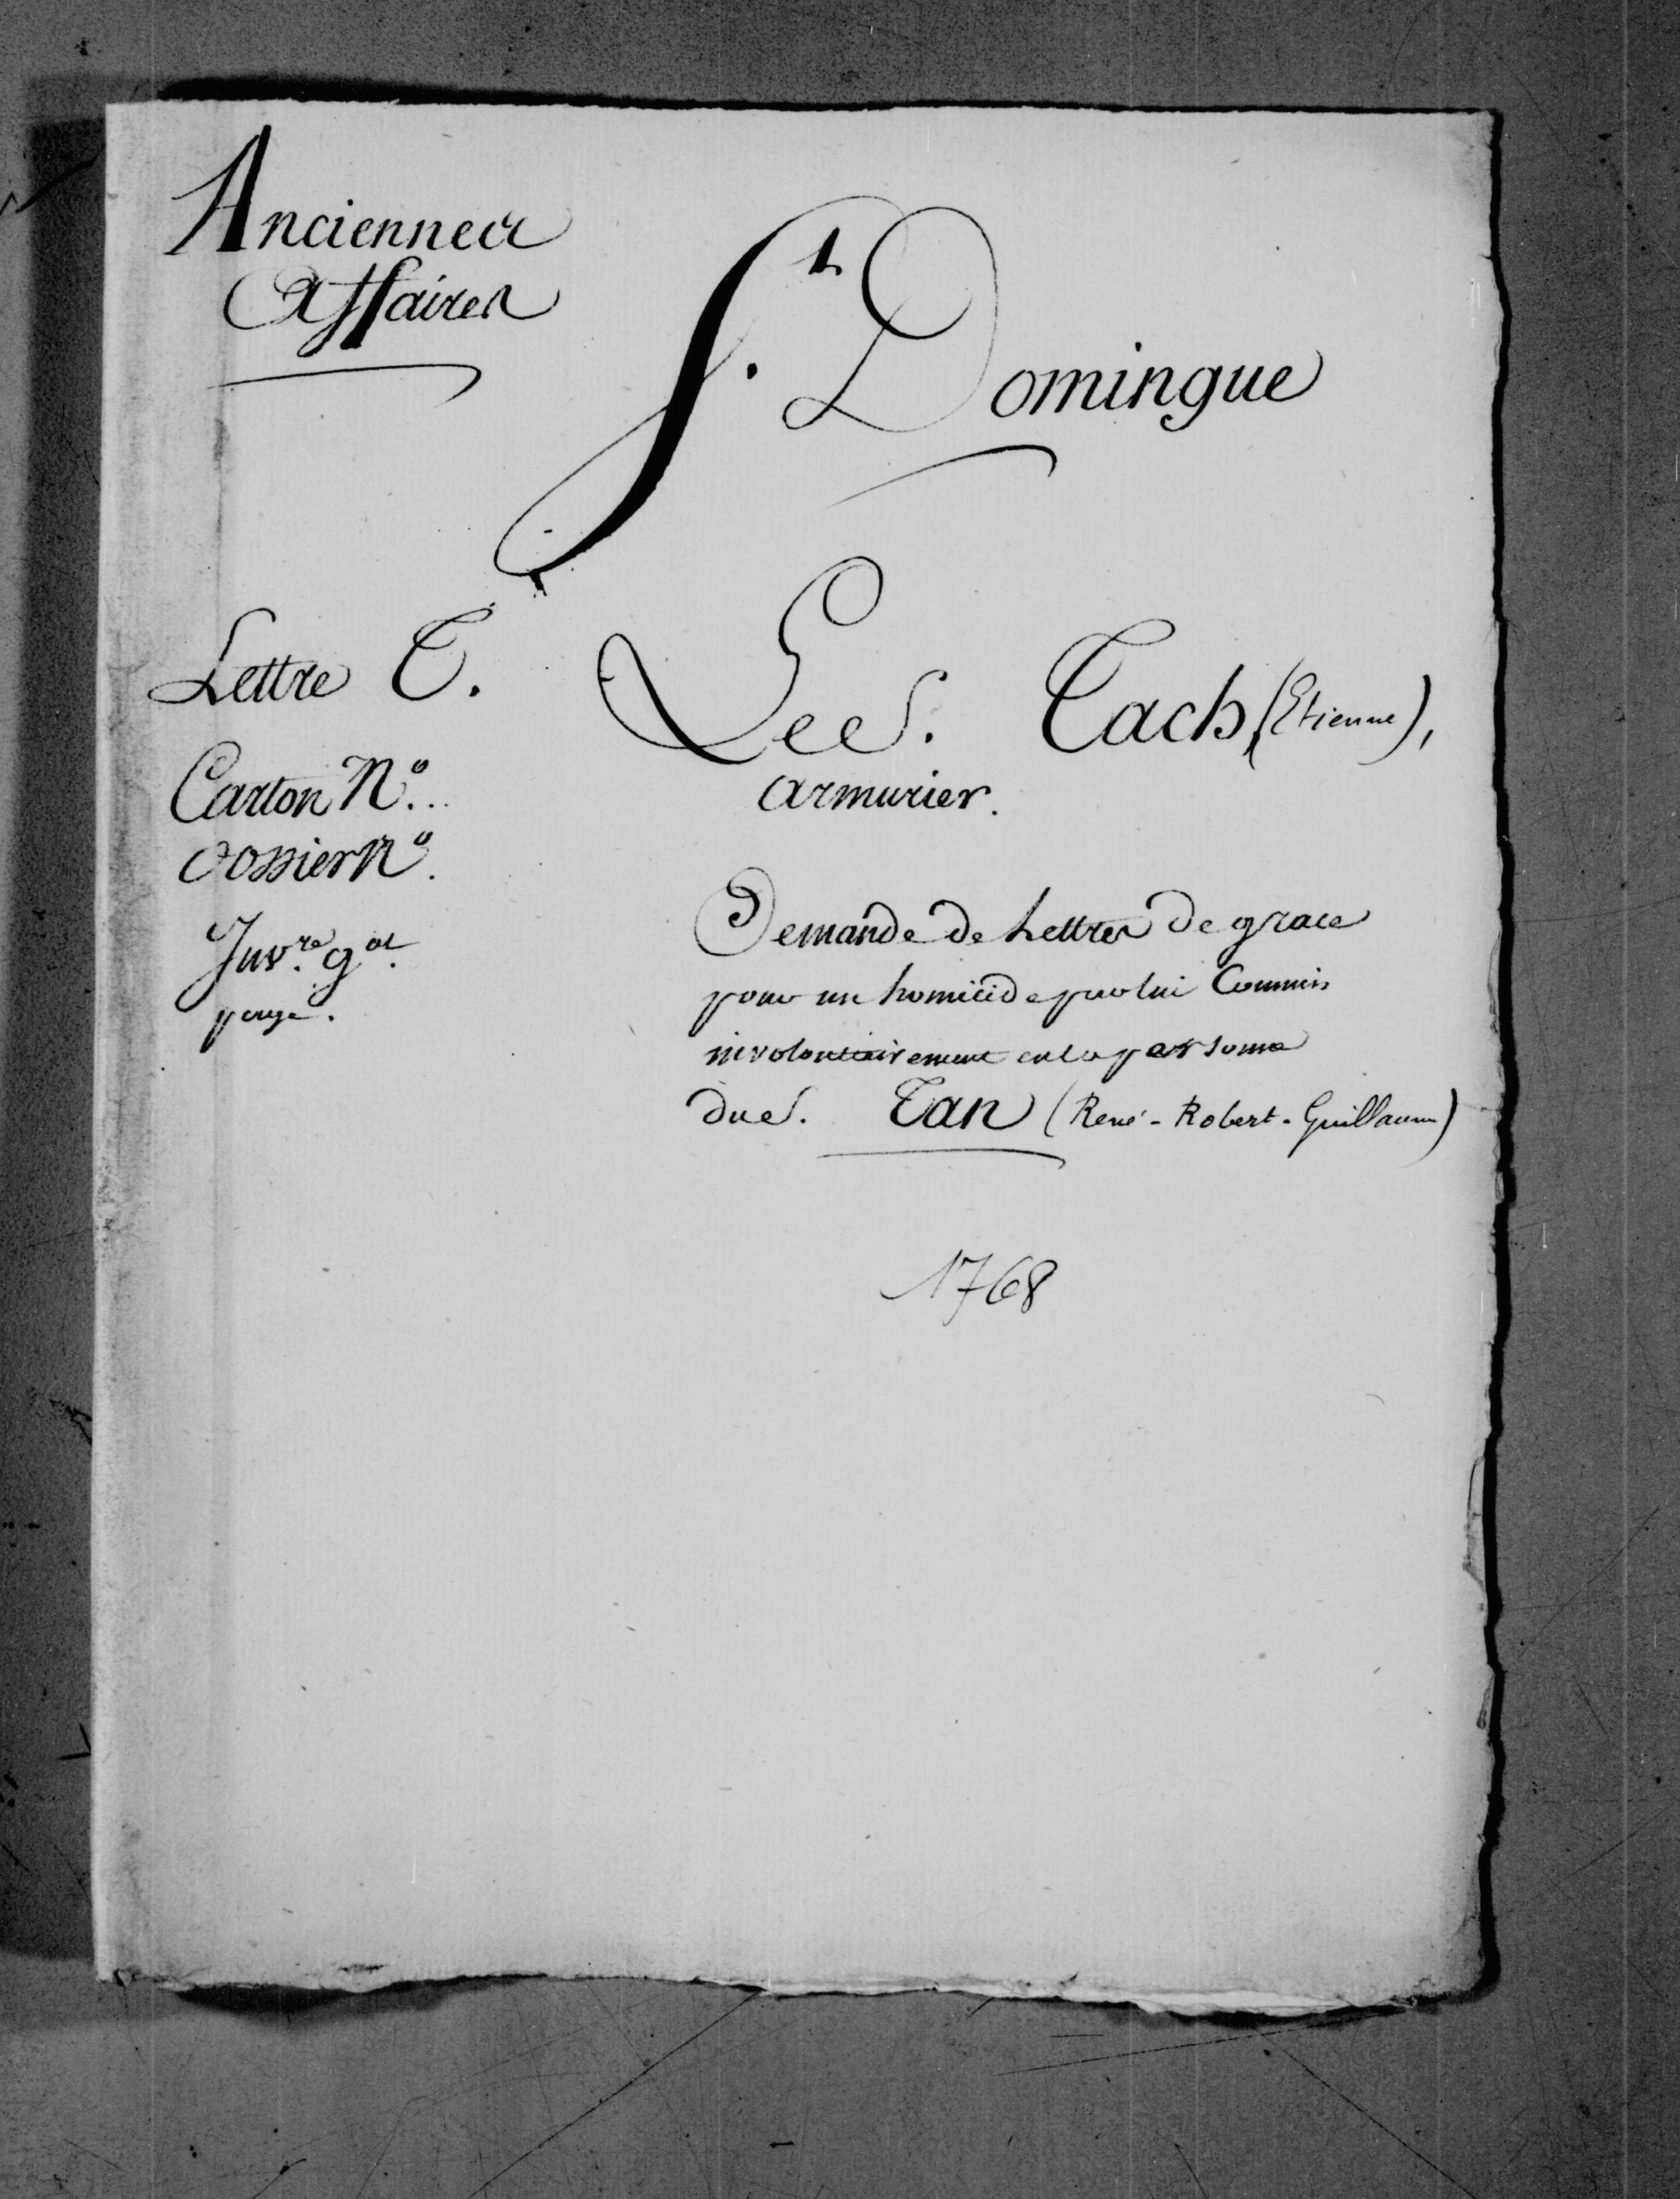 Anciennes
Affaires
St. Domingue
Lettre T.
Carton No.
Dossier No.
Inv.re g.al
page.
Le S. Tach (Etienne),
armurier.
Demande de Lettres de grace
pour un homicide par lui Commis
involontairement en la personne
du S. Tan (René-Robert-Guillaume)
1768